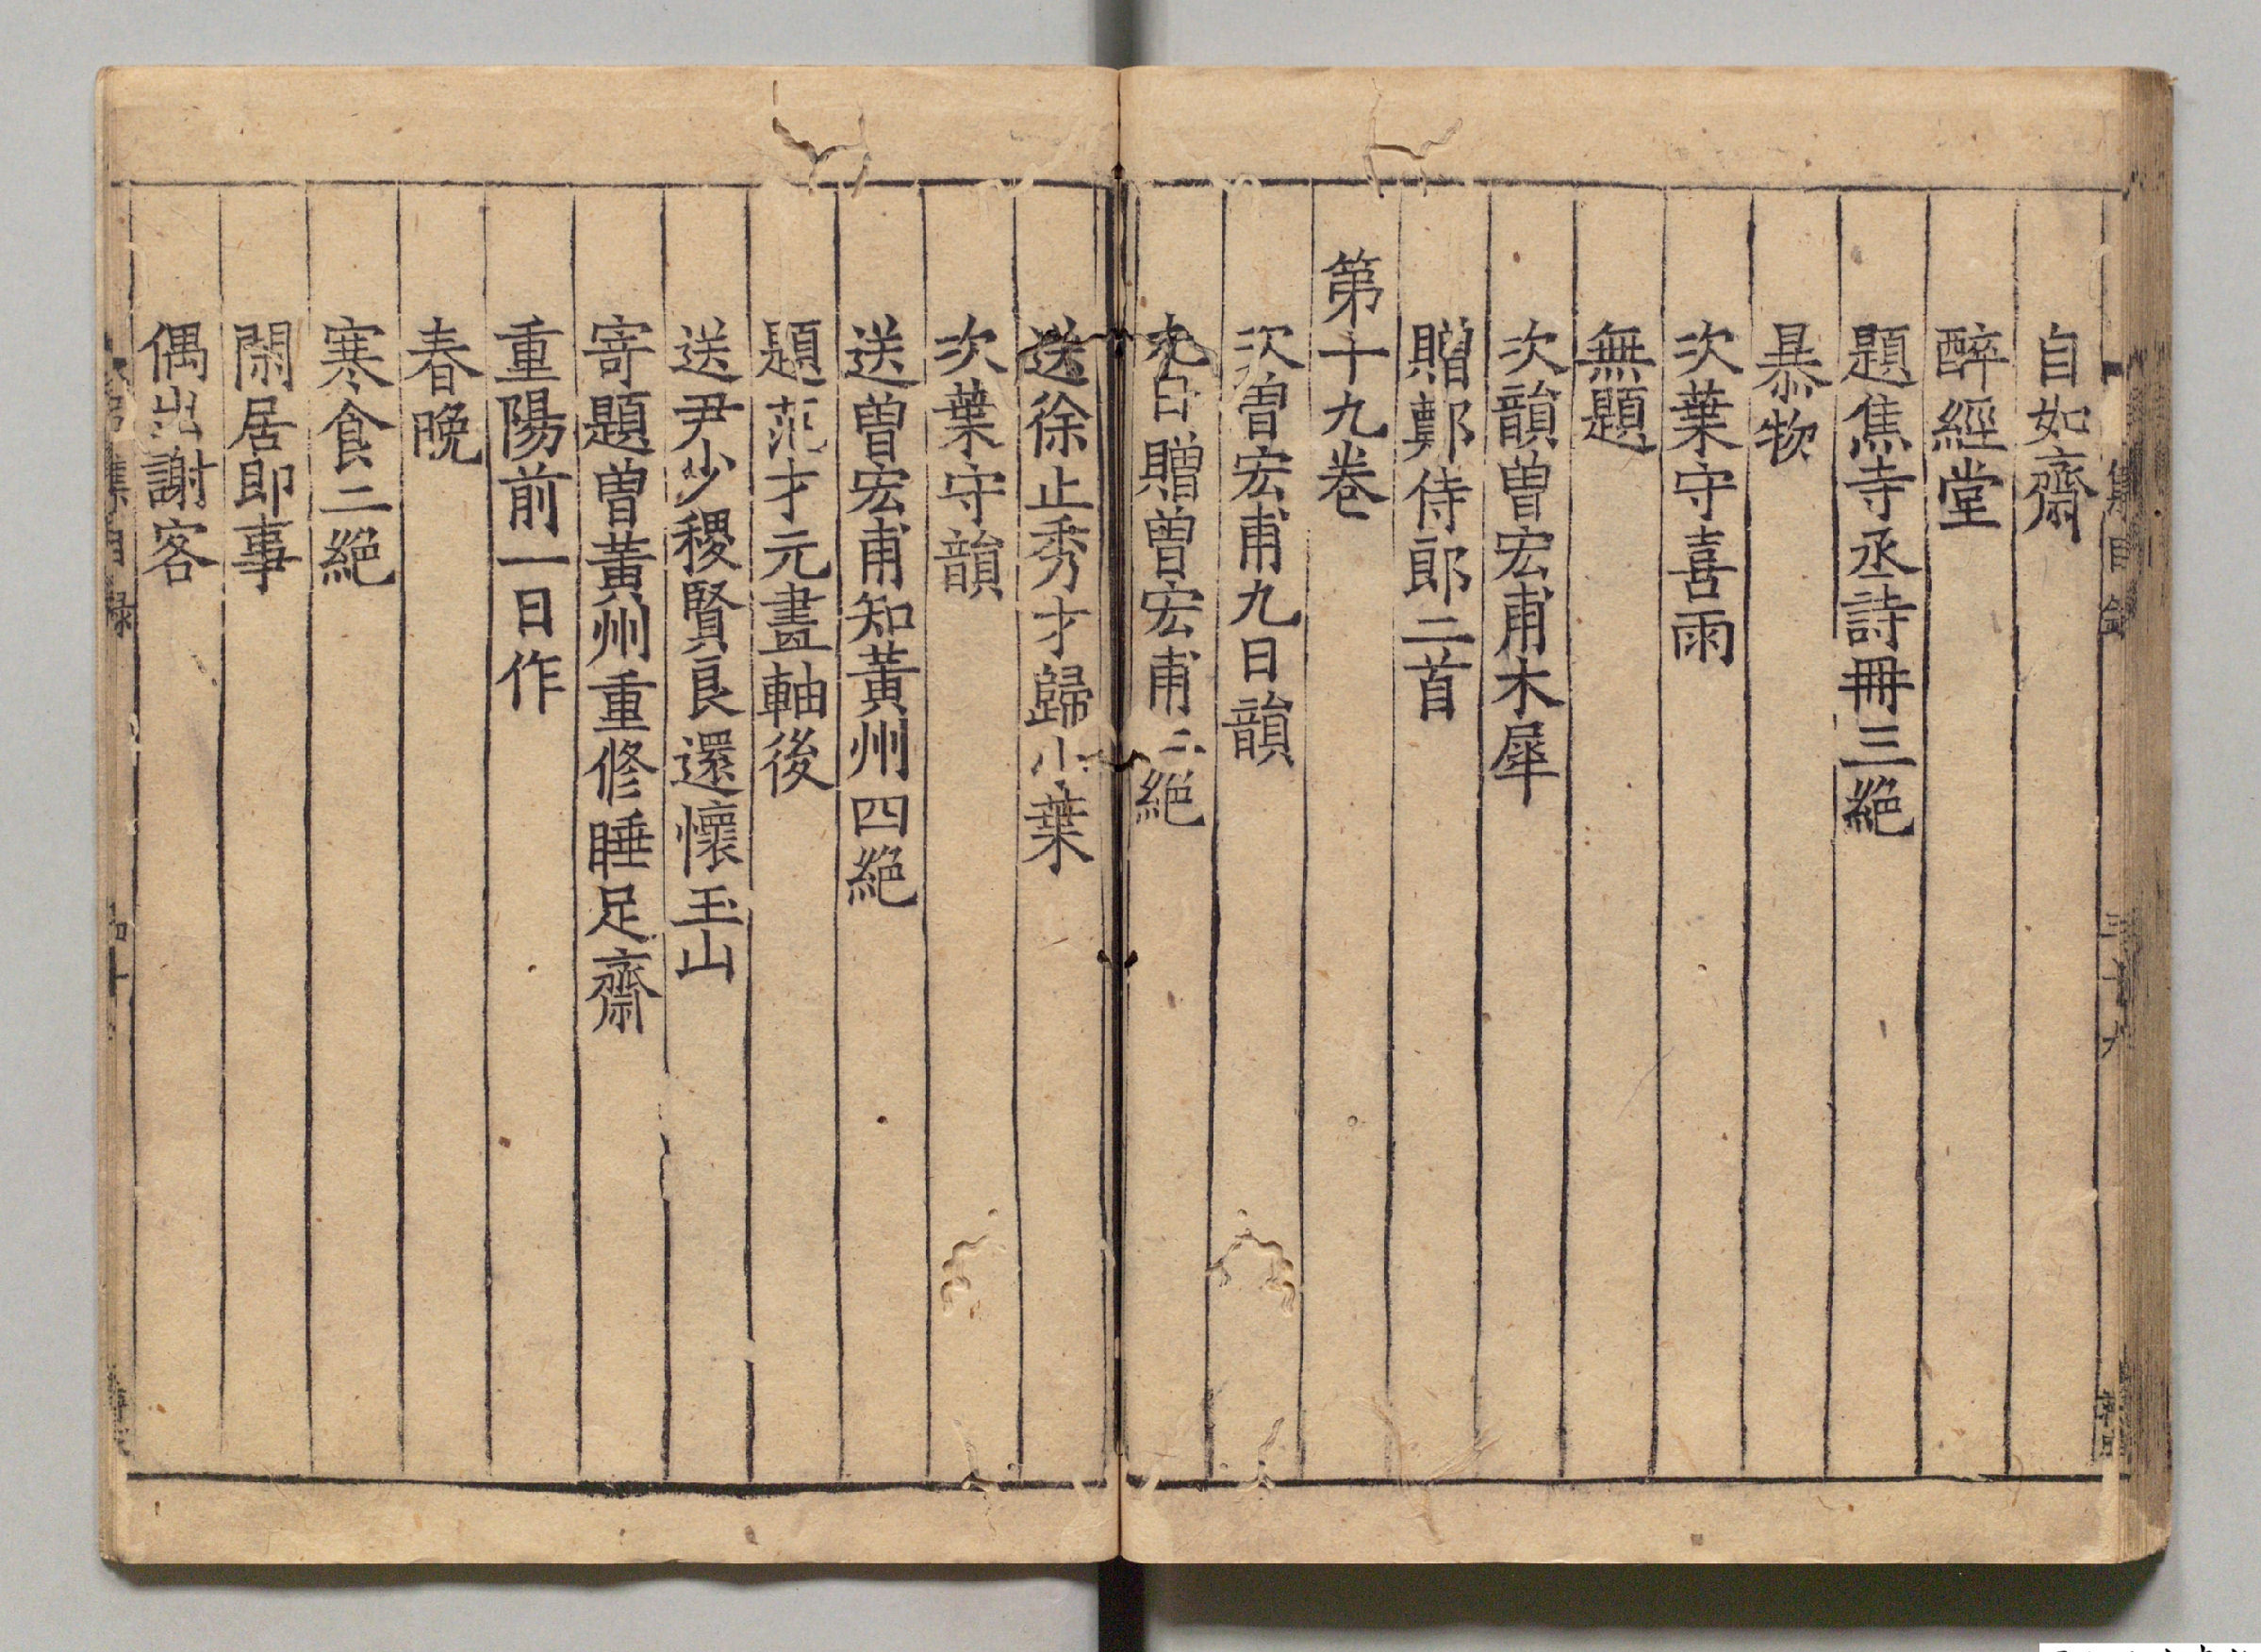 自如齋
醉經堂
題焦寺丞詩冊三絕
暴物
次葉守喜雨
無題
次韻曾宏甫木犀
贈鄭侍郎二首
第十九卷
次曾宏甫九日韻
九日贈曾宏甫二絕
送徐止秀才歸小葉
次葉守韻
送曾宏甫知黃州四絕
題范才元畫軸後
送尹少稷賢良還懷玉山
寄題曾黃州重修睡足齋
重陽前一日作
春晚
寒食二絕
閑居即事
偶出謝客